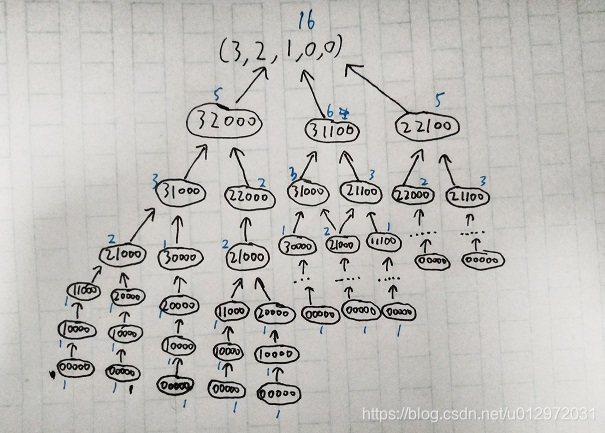 16
(3,2,1,0,0)
5 6 5
32000 31100 22100
3 2 3 3 2 3
31000 22000 31000 21100 22000 21100
2 1 2 1 2 1
21000 30000 21000 30000 21000 11100 ...... ......
00000 00000
11000 20000 20000 11000 20000 .... ..... ....
1 1 1 1 1
10000 10000 10000 10000 10000 00000 00000 00000
1 1 1 1 1 1 1 1
00000 00000 00000 00000 00000
1 1 1 1 1
https://blog.csdn.net/u012972031